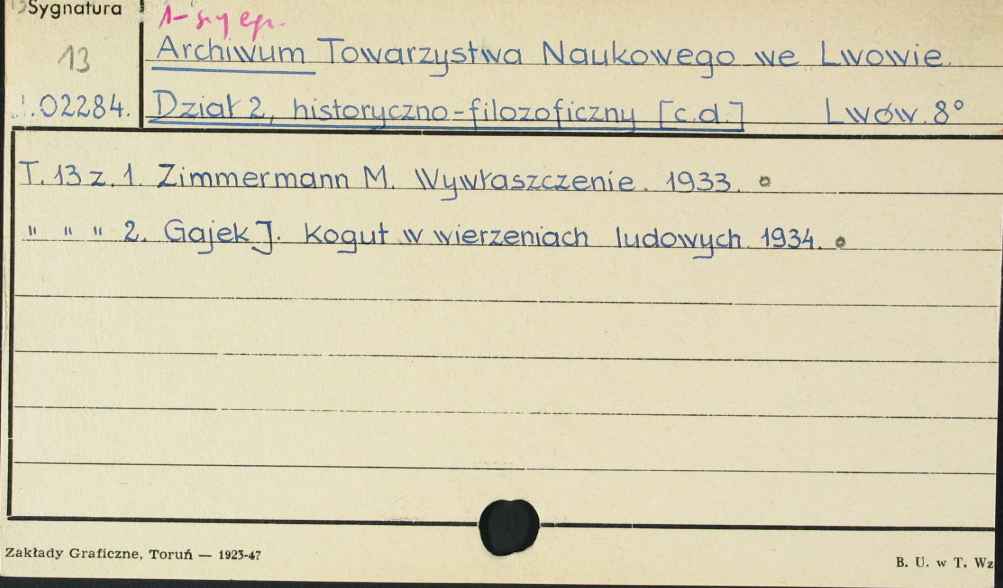 Sygnatura
1-szy egz.
13
Archiwum Towarzystwa Naukowego we Lwowie.
02284.
Dział 2, historyczno-filozoficzny [c.d.] Lwów. 8°
T. 13 z. 1. Zimmermann M. Wywłaszczenie. 1933.
" " " 2. Gajek J. Kogut w wierzeniach ludowych. 1934.
Zakłady Graficzne, Toruń — 1923-47
B. U. w T. Wz